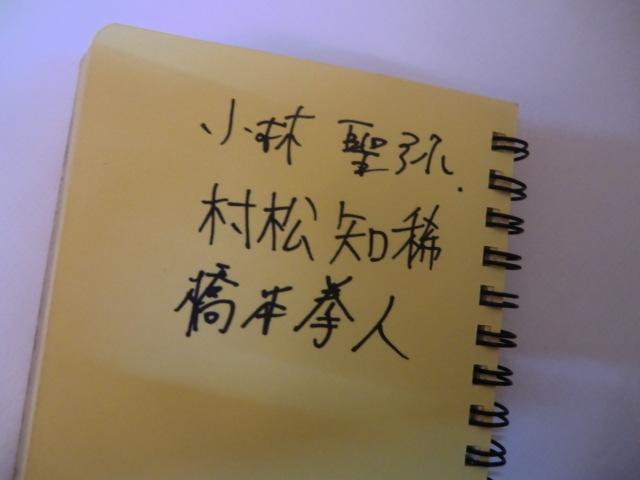 小林 聖弥
村松 知稀
橋本拳人